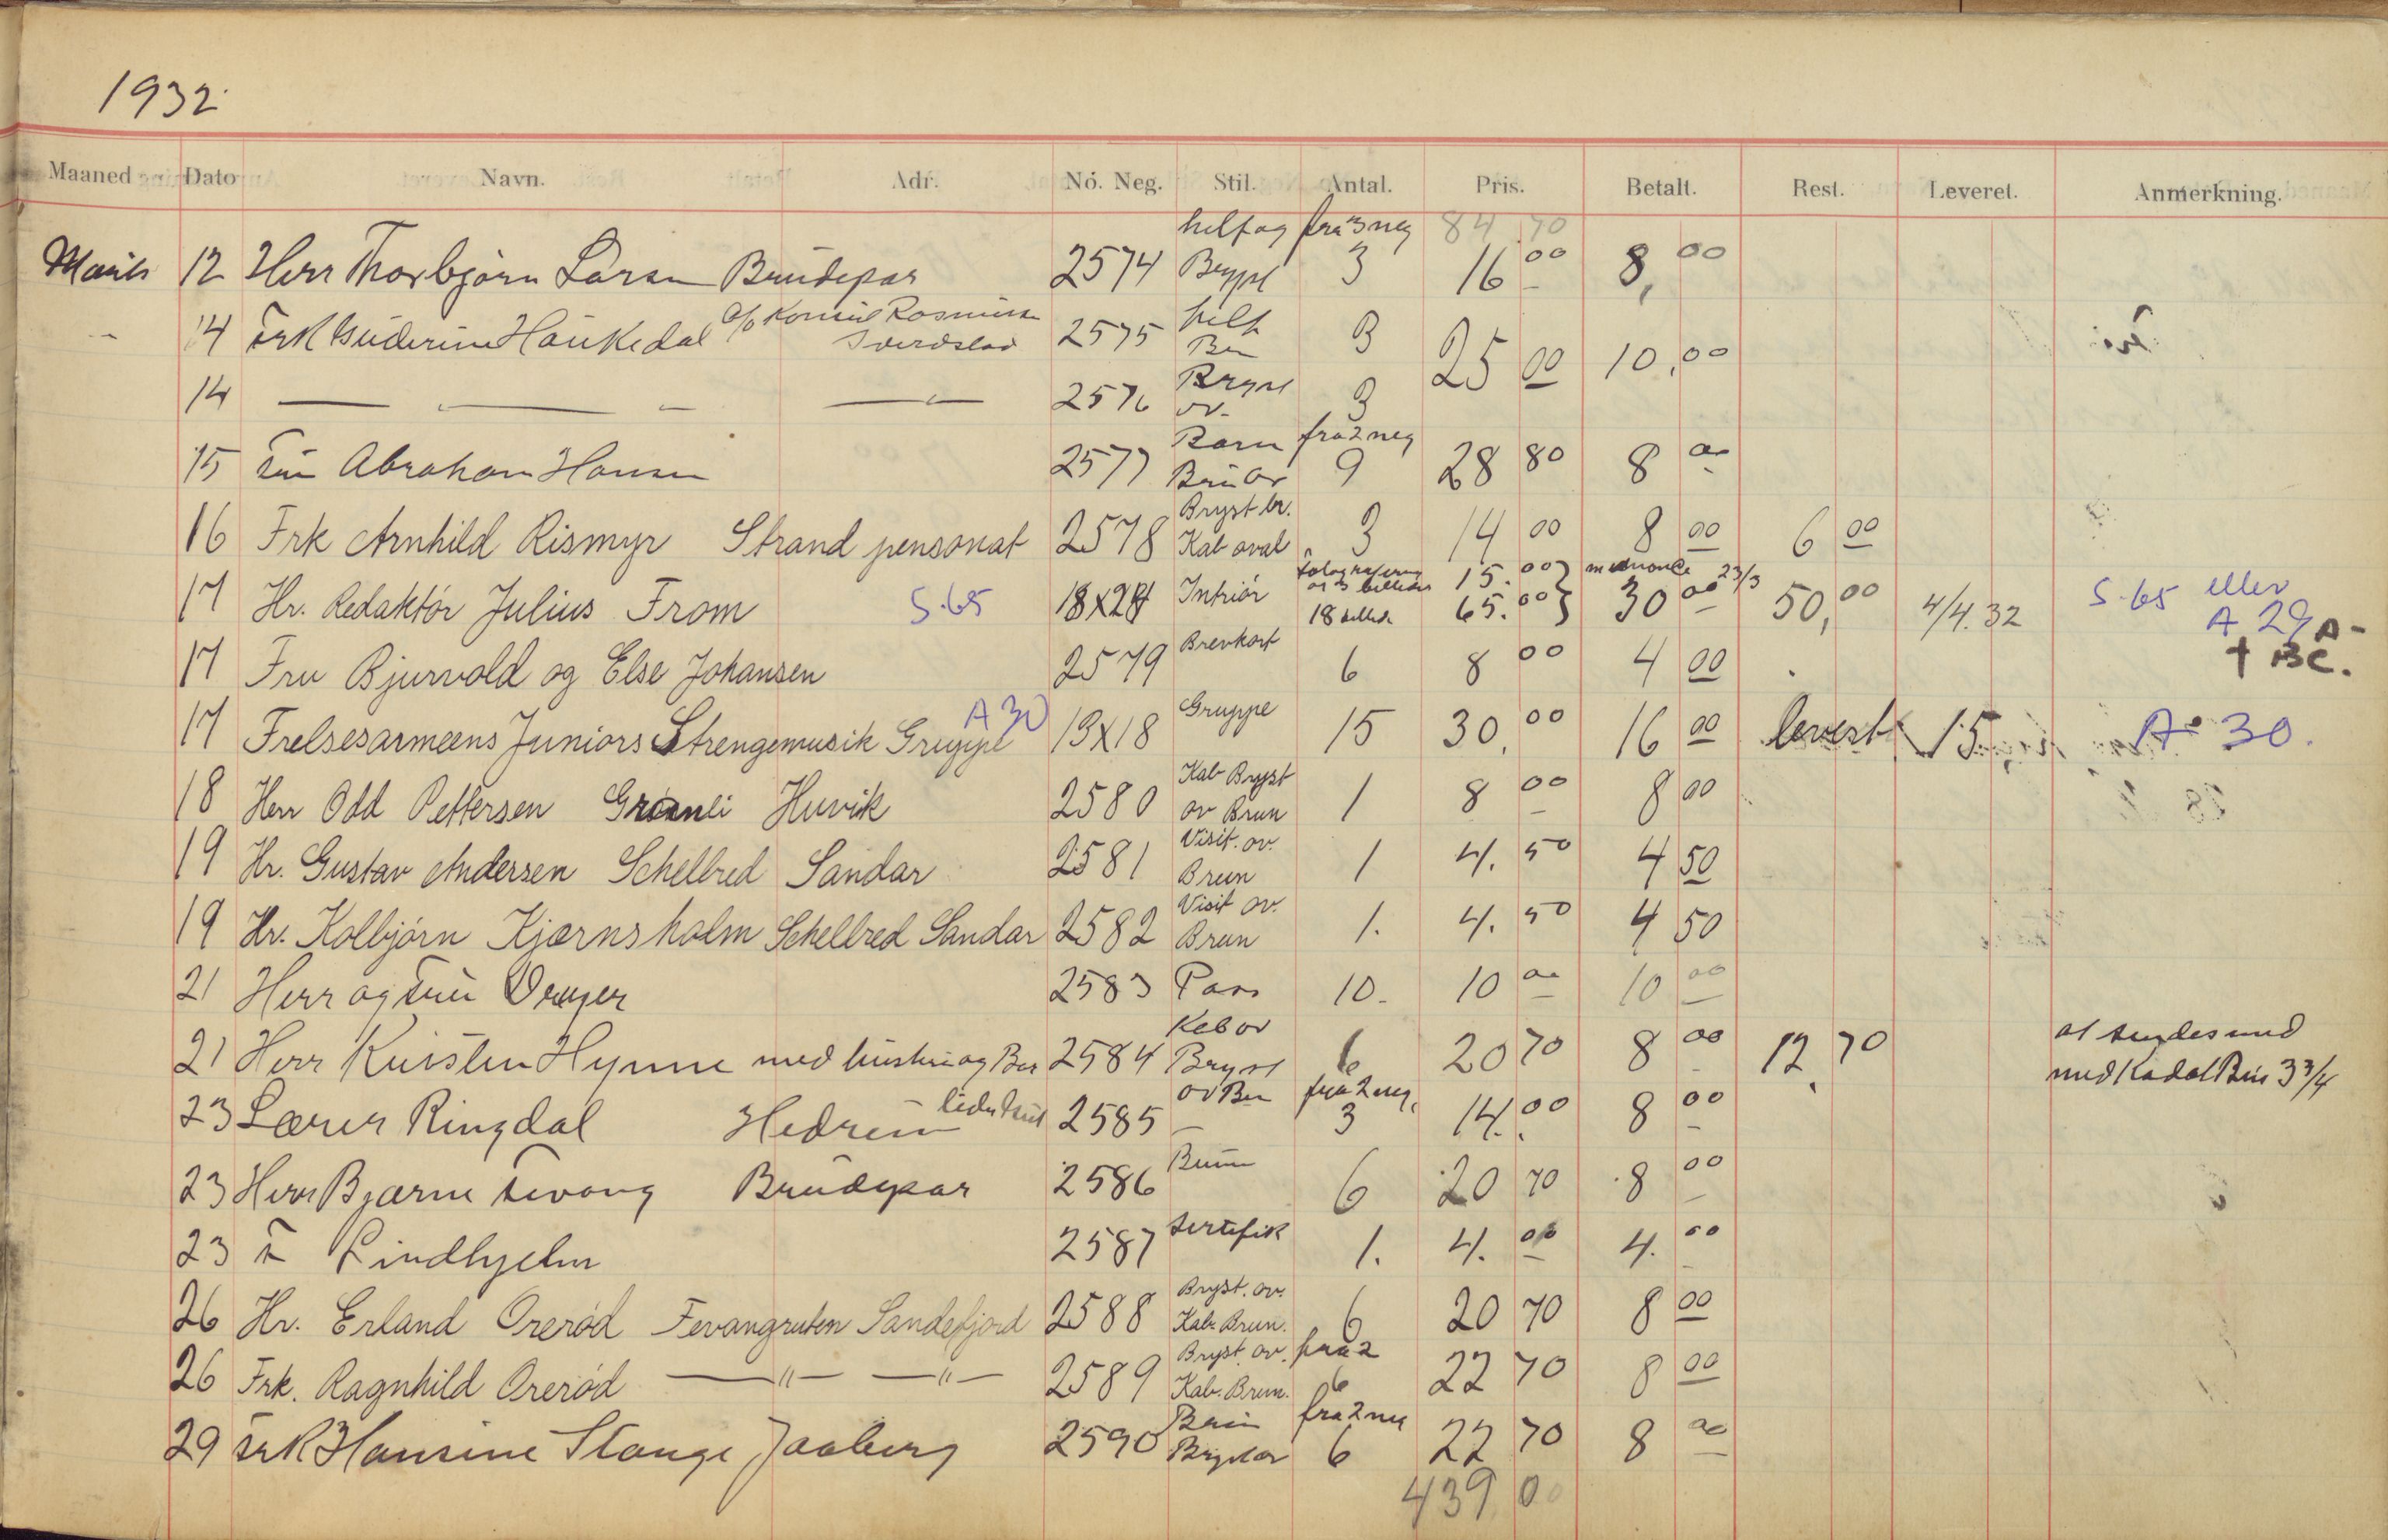 1932
Maaned Dato Navn. Adr. No. Neg. Stil. Antal. Pris. Betalt. Rest. Leveret. Anmerkning.
helfog fra 3 neg 84.70
12 Herr Thorbjørn Larsen Brudepar 2574 3 16 00 8,00
14 Frk Haukedal c/o 2575 3 25 00 10,00
14 2576 3
Barn fra 2 neg
15 Fru Abraham Hansen 2577 9 28 80 8 00
16 Frk Arnhild Rismyr Strand pensonat 2578 Bryst br. Kab oval 3 14 00 8 00 6 00
17 Hr. Redaktör Julius From S.65 18x24 Intriör 15.00 23/3
18 65.00 30 00 50,00 4/4.32 S.65 eller A 29 A- + BC.
17 Fru Bjurvold og Else Johansen 2579 Brevkort 6 8 00 4 00
17 Frelsesarmeens Juniors Strengemusik Gruppe A 30 13x18 Gruppe 15 30,00 16 00 levert 15 A 30.
18 Herr Odd Pettersen Granli Huvik 2580 Kab Bryst ov Brun 1 8 00 8 00
19 Hr. Gustav Andersen Schellred Sandar 2581 Visit. ov. Brun 1 4.50 4 50
19 Hr. Kolbjörn Kjærnsholm Schellred Sandar 2582 Visit ov. Brun 1. 4.50 4 50
21 Herr og Fru Dreyer 2583 Pass 10. 10 00 10 00
21 Herr Hynne med hustru og 2584 Kab ov Bryst 6 20 70 8 00 12,70
23 Lærer Ringdal Hedrum 2585 fra 2 neg. 3 14.00 8 00
23 Herr Bjarne Brudepar 2586 6 20 70 8 00
23 Lindhjelm 2587 sertefik 1. 4.00 4.00
26 Hr. Erland Orerød Fevangruten Sandefjord 2588 Bryst. ov. Kab. Brun. 6 20 70 8 00
26 Frk. Ragnhild Orerød —"— —"— 2589 Bryst. ov. Kab. Brun. fra 2 6 22 70 8 00
29 Frk Hansine Stange Jaaberg 2590 fra 2 neg 6 22 70 8 00
439 00